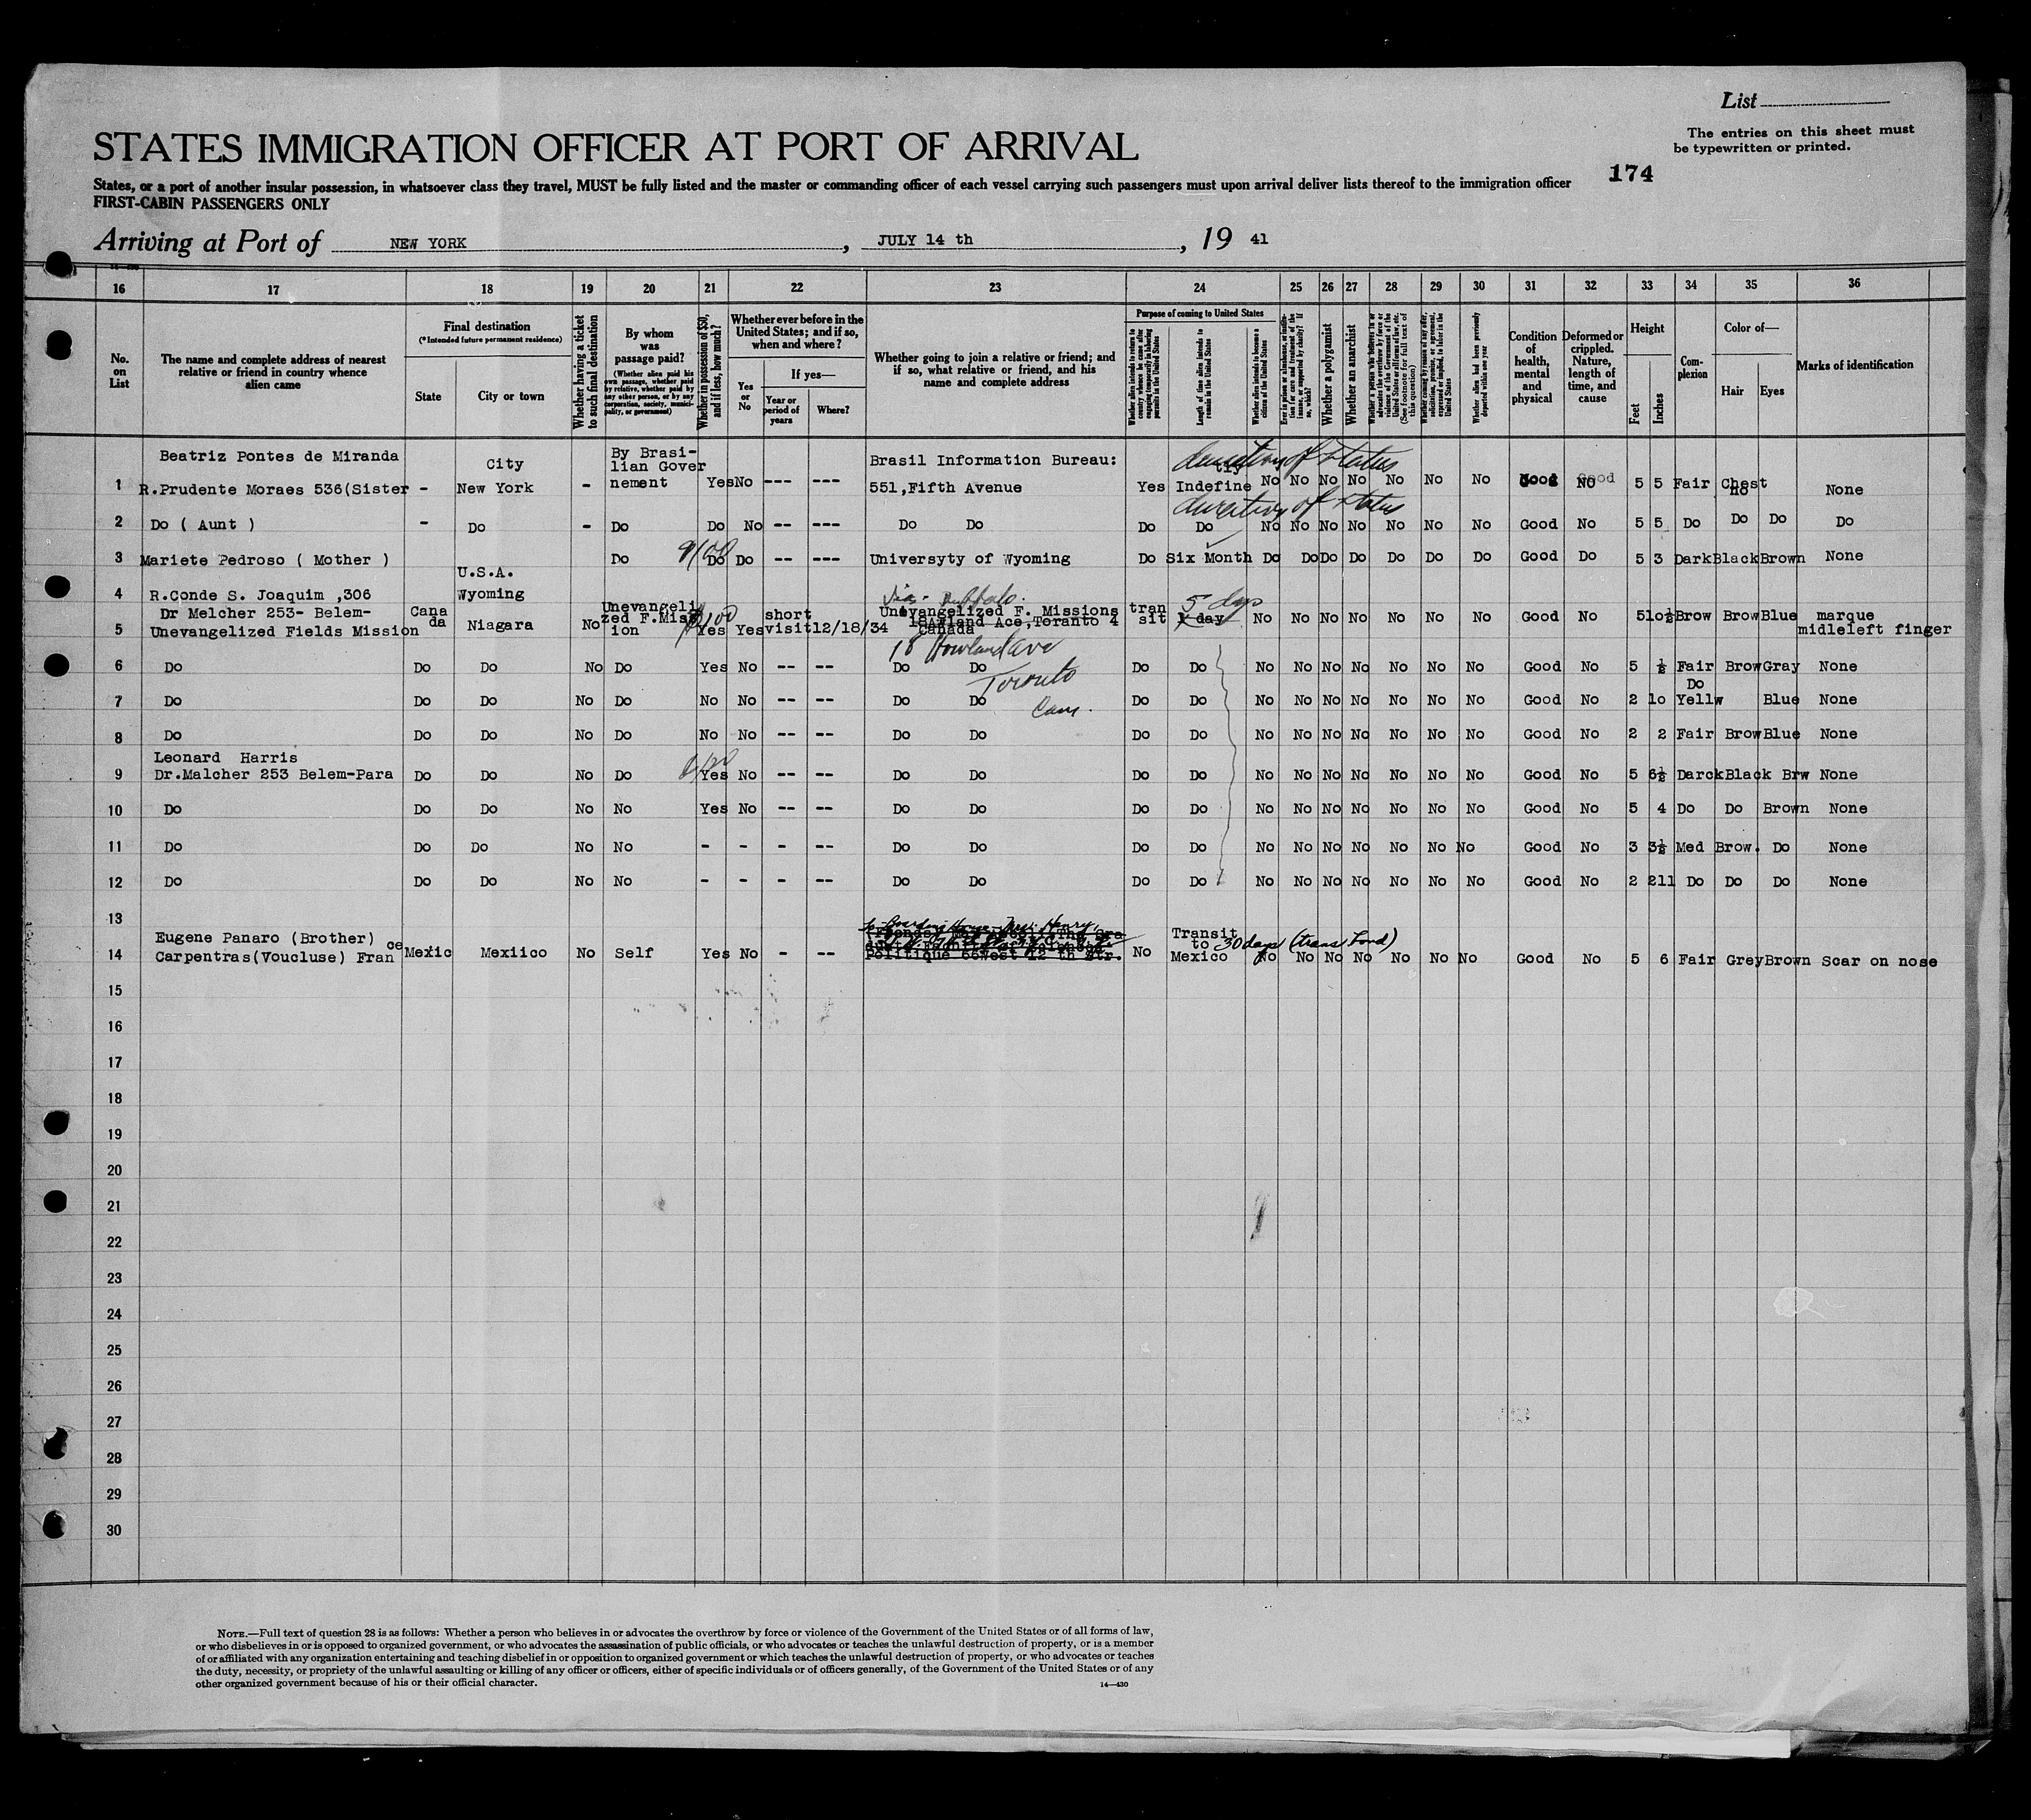 List
The entries on this sheet must
be typewritten or printed.
STATES IMMIGRATION OFFICER AT PORT OF ARRIVAL
174
States, or a port of another insular possession, in whatsoever class they travel, MUST be fully listed and the master or commanding officer of each vessel carrying such passengers must upon arrival deliver lists thereof to the immigration officer
FIRST-CABIN PASSENGERS ONLY
Arriving at Port of NEW YORK , JULY 14 th , 19 41
16 17 18 19 20 21 22 23 24 25 26 27 28 29 30 31 32 33 34 35 36
No. on List
The name and complete address of nearest relative or friend in country whence alien came
Final destination
(*Intended future permanent residence)
State
City or town
Whether having a ticket to such final destination
By whom was passage paid?
(Whether alien paid his own passage, whether paid by relative, whether paid by any other person, or by any corporation, society, municipality, or government)
Whether in possession of $50, and if less, how much?
Whether ever before in the United States; and if so, when and where?
Yes or No
If yes—
Year or period of years
Where?
Whether going to join a relative or friend; and if so, what relative or friend, and his name and complete address
Purpose of coming to United States
Length of time alien intends to remain in the United States
Whether alien intends to become a citizen of the United States
Whether a polygamist
Whether an anarchist
(See footnote for full text of this question)
Whether alien had been previously deported within one year
Condition of health, mental and physical
Deformed or crippled. Nature, length of time, and cause
Height
Feet
Inches
Complexion
Color of—
Hair
Eyes
Marks of identification
Beatriz Pontes de Miranda City By Brasi-lian Gover nement Brasil Information Bureau:
1 R.Prudente Moraes 536(Sister - New York - Yes No --- --- 551,Fifth Avenue Yes Indefine tly No No No No No No No Good No 5 5 Fair Chest no None
2 Do ( Aunt ) - Do - Do Do No -- --- Do Do Do Do No No No No No No No Good No 5 5 Do Do Do Do
3 Mariete Pedroso ( Mother ) Do Do Do -- --- Universyty of Wyoming Do Six Month Do Do Do Do Do Do Do Good Do 5 3 Dark Black Brown None
U.S.A.
4 R.Conde S. Joaquim ,306 Wyoming
Dr Melcher 253- Belem- Cana da Unevangeli zed F.Miss ion short visit Unevangelized F. Missions tran sit 5 days
5 Unevangelized Fields Mission Niagara No Yes Yes 12/18/34 Toranto 4 Canada No No No No No No No Good No 5 10½ Brow Brow Blue marque midleleft finger
18 Howland Ave
Toronto
Can.
6 Do Do Do No Do Yes No -- -- Do Do Do Do No No No No No No No Good No 5 ½ Fair Brow Gray None
7 Do Do Do No Do No No -- -- Do Do Do Do No No No No No No No Good No 2 10 Do Yellw Blue None
8 Do Do Do No Do No No -- -- Do Do Do Do No No No No No No No Good No 2 2 Fair Brow Blue None
Leonard Harris
9 Dr.Malcher 253 Belem-Para Do Do No Do Yes No -- -- Do Do Do Do No No No No No No No Good No 5 6½ Darck Black Brw None
10 Do Do Do No No Yes No -- -- Do Do Do Do No No No No No No No Good No 5 4 Do Do Brown None
11 Do Do Do No No - - - -- Do Do Do Do No No No No No No No Good No 3 3½ Med Brow. Do None
12 Do Do Do No No - - - -- Do Do Do Do No No No No No No No Good No 2 211 Do Do Do None
13
Eugene Panaro (Brother) Transit to 30 days (trans bond)
14 Carpentras(Voucluse) Fran ce Mexic Mexiico No Self Yes No - -- Politique 66West 12 th Str. No Mexico No No No No No No No Good No 5 6 Fair Grey Brown Scar on nose
15
16
17
18
19
20
21
22
23
24
25
26
27
28
29
30
NOTE.—Full text of question 28 is as follows: Whether a person who believes in or advocates the overthrow by force or violence of the Government of the United States or of all forms of law,
or who disbelieves in or is opposed to organized government, or who advocates the assassination of public officials, or who advocates or teaches the unlawful destruction of property, or is a member
of or affiliated with any organization entertaining and teaching disbelief in or opposition to organized government or which teaches the unlawful destruction of property, or who advocates or teaches
the duty, necessity, or propriety of the unlawful assaulting or killing of any officer or officers, either of specific individuals or of officers generally, of the Government of the United States or of any
other organized government because of his or their official character.
14—430